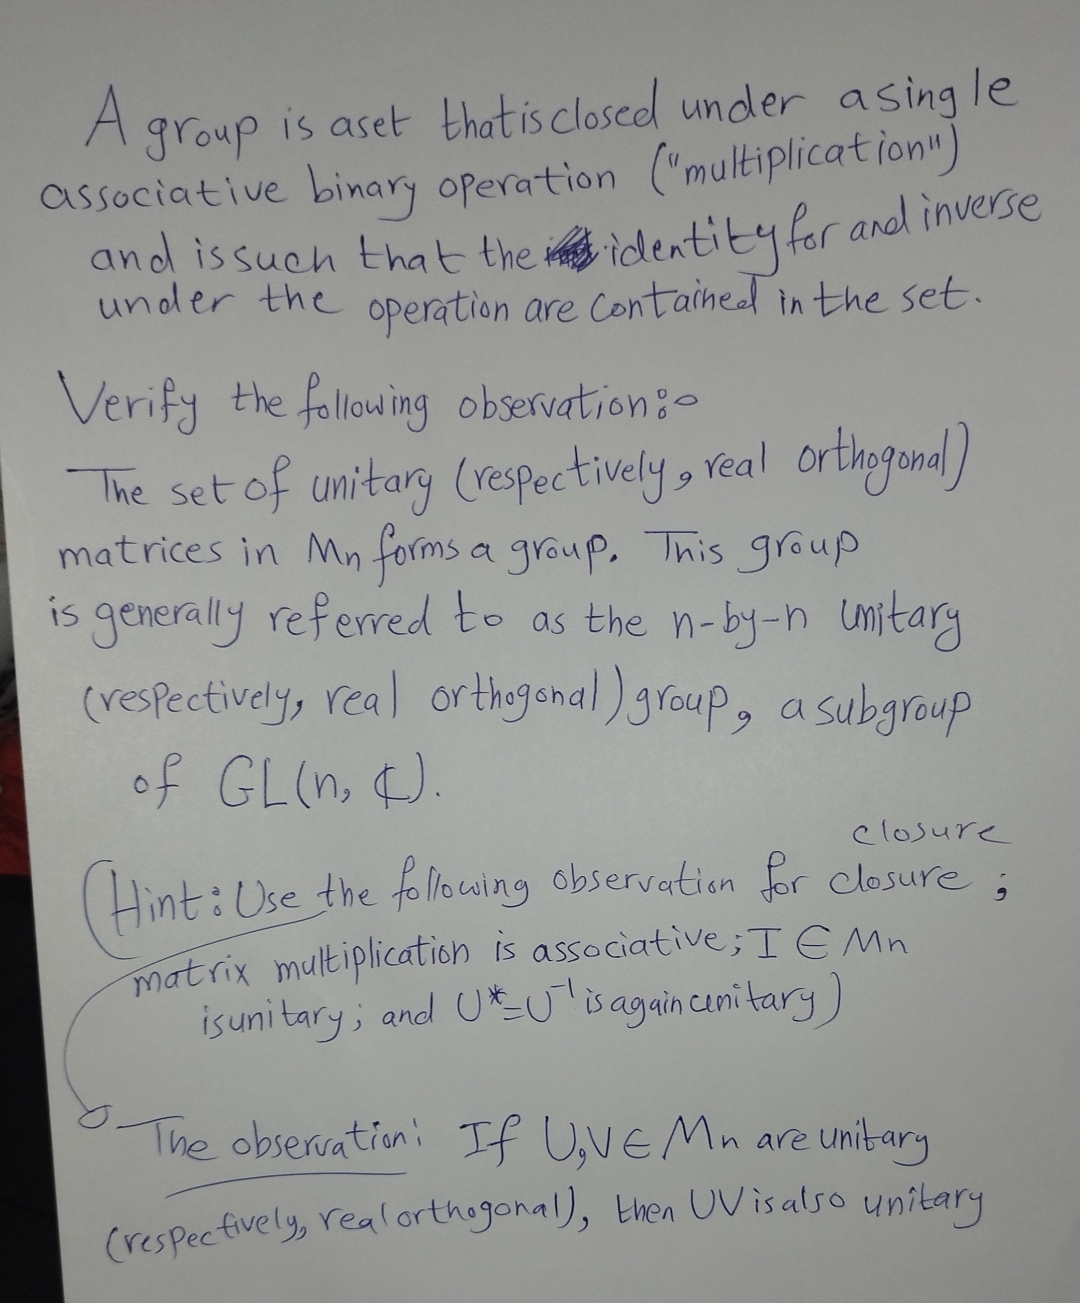 A group is a set that is closed under a single
associative binary operation ("multiplication")
and is such that the identity for and inverse
under the operation are contained in the set.
Verify the following observation:-
The set of unitary (respectively, real orthogonal)
matrices in Mn forms a group. This group
is generally referred to as the n-by-n unitary
(respectively, real orthogonal) group, a subgroup
of GL(n, ℂ).
closure
(Hint: Use the following observation for closure ;
matrix multiplication is associative; I ∈ Mn
is unitary; and U*=U⁻¹ is again unitary)
The observation: If U,V ∈ Mn are unitary
(respectively, real orthogonal), then UV is also unitary